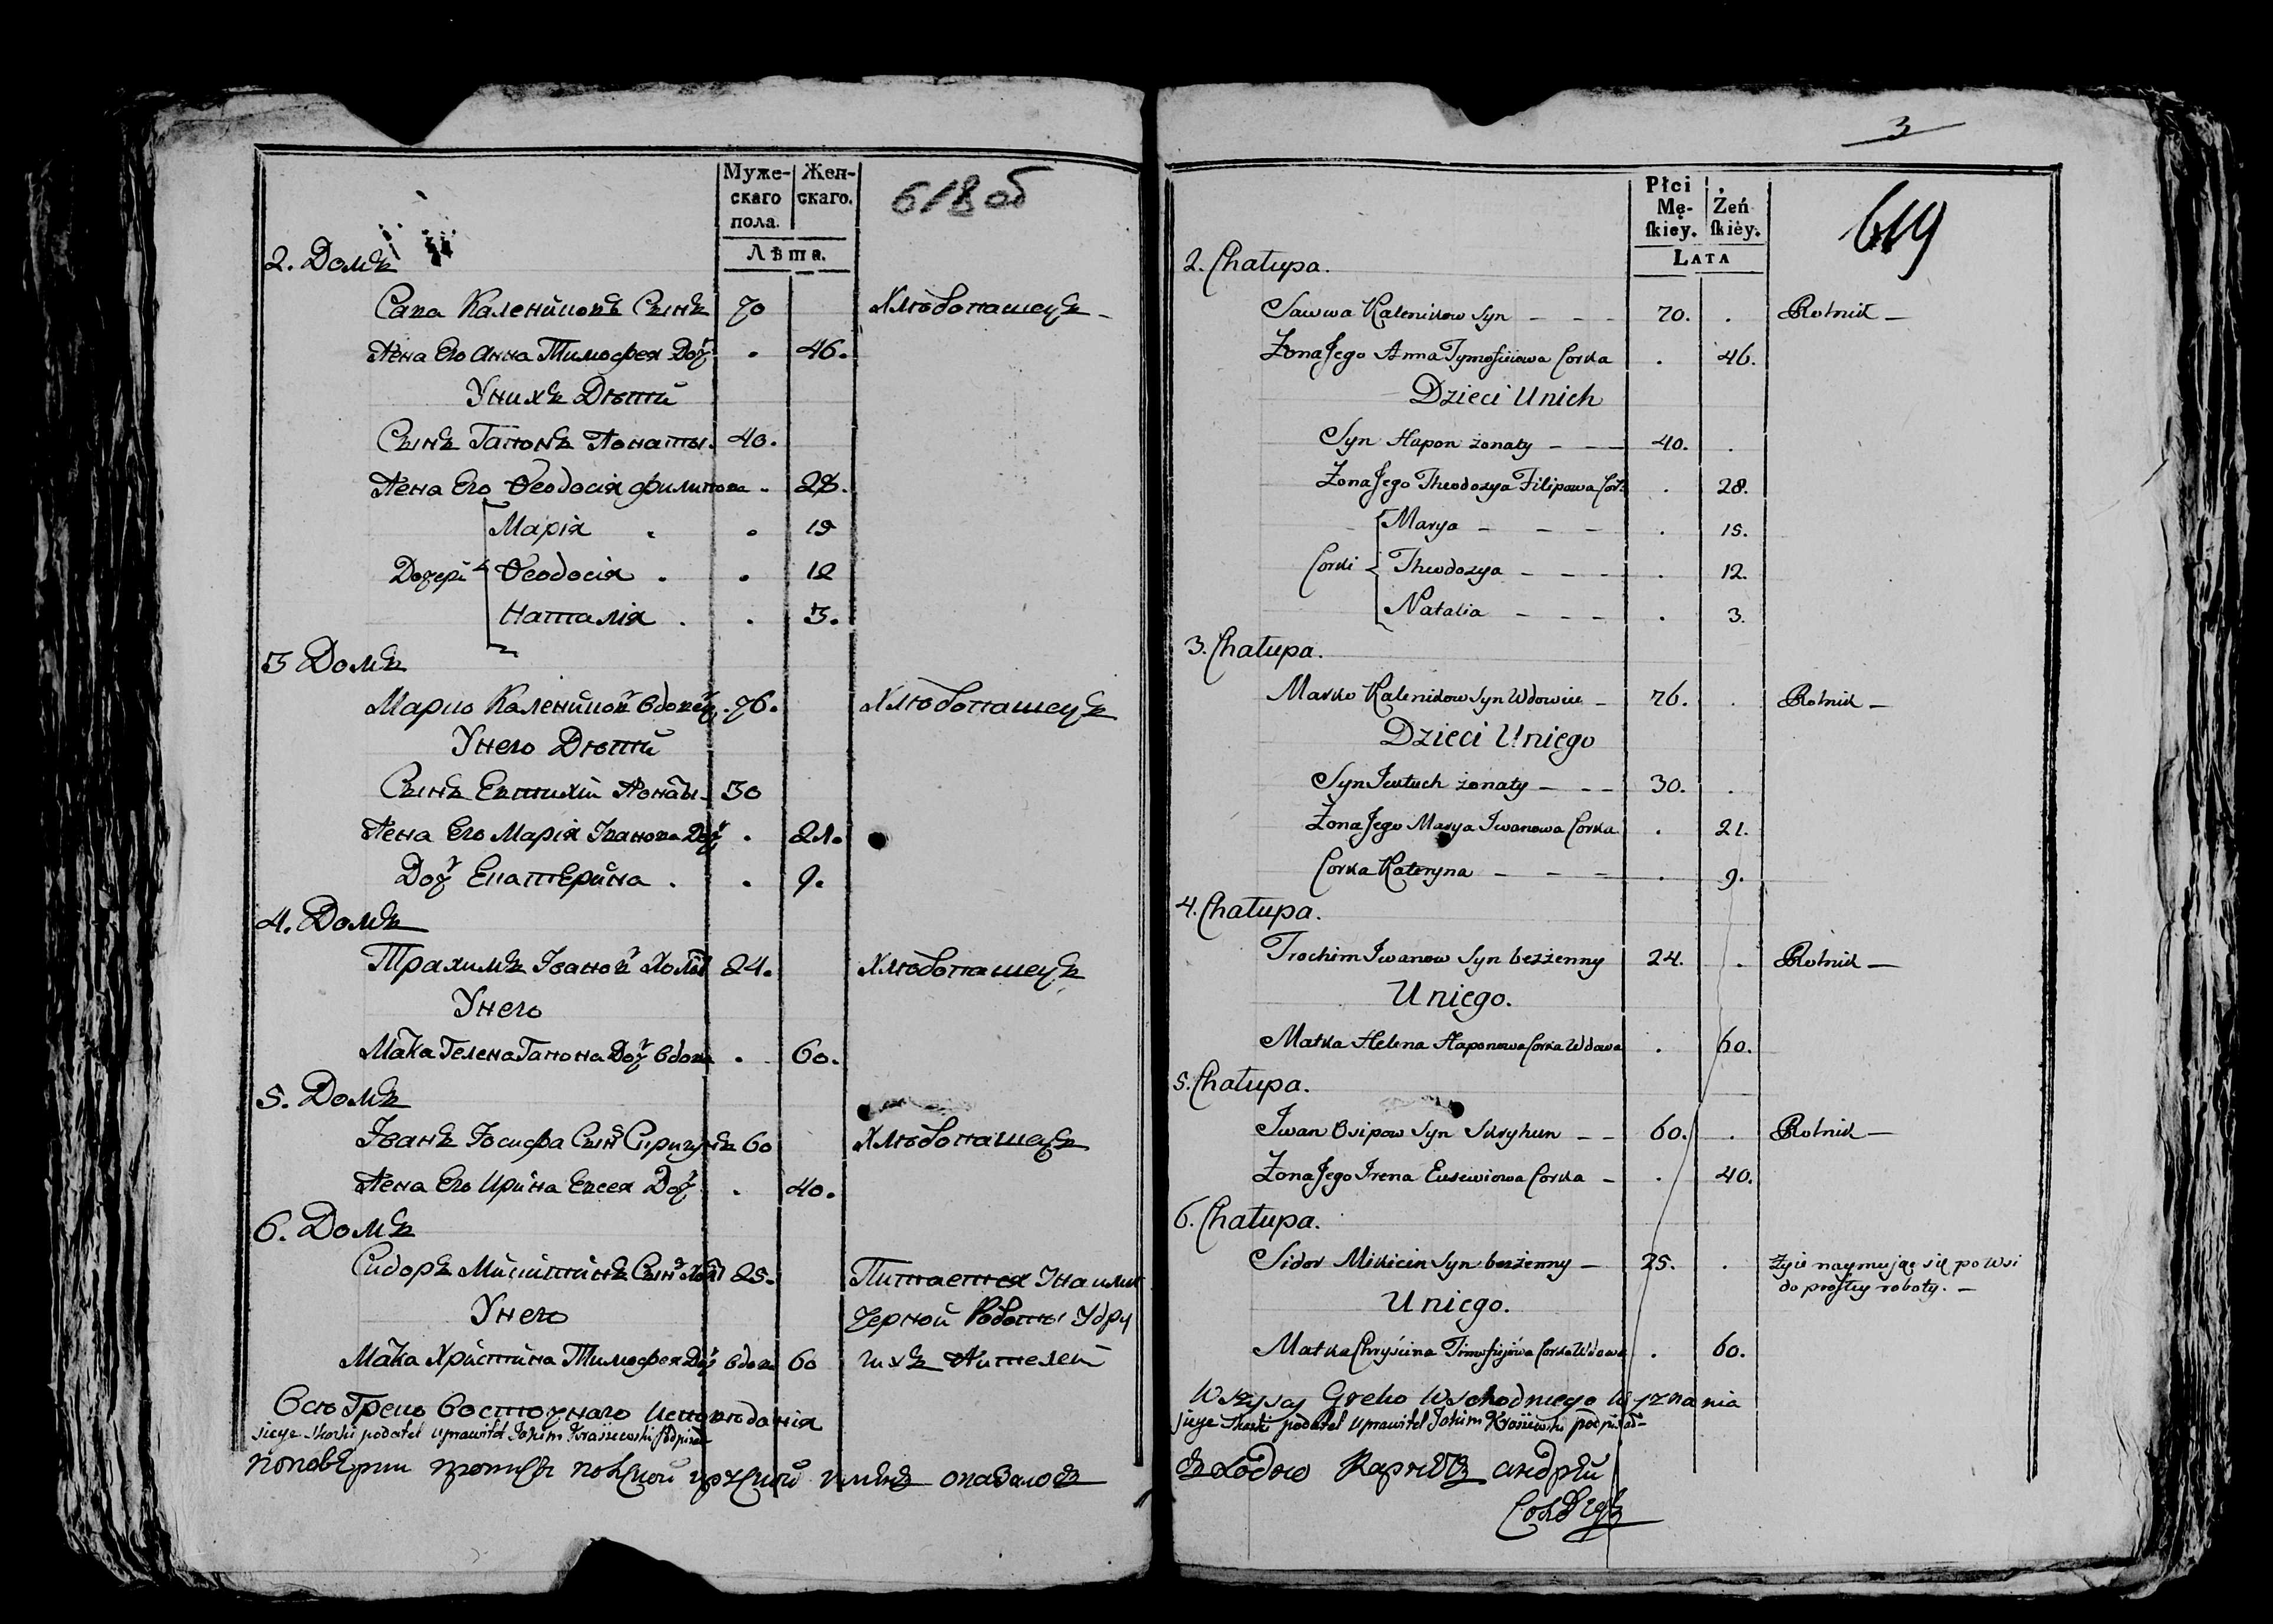 Муже-
скаго
пола.
Жен-
скаго.
Лѣта.
618 об
2. Домъ
Сава Калениковъ Сынъ 70 Хлѣбопашецъ -
Жена Его Анна Тимофея Доч . 46.
Унихъ Дѣти
Сынъ Гапонъ Жонаты. 40.
Жена Его Ѳеодосія филипова . 28.
Марія . . 15
Дочери Ѳеодосія . . 12
Наталія . . 3.
3 Домъ
Марко Калеников вдовец . 76. Хлѣбопашецъ
Унего Дѣти
Сынъ Евтихій Жонаты 30
Жена Его Марія Іванова Доч . 21.
Доч Екатерина . . 9.
4. Домъ
Трахимъ Іванов Холост 24. Хлѣбопашецъ
Унего
Матка Гелена Гапона Доч вдова . 60.
5. Домъ
Іванъ Іосифа Сын Скригунъ 60 Хлѣбопашецъ
Жена Его Ирина Евсея Доч . 40.
6. Домъ
Сидоръ Микитинъ Сын Холост 25. Питается Унаимк
Унего Черной Работы Удру
Матка Христина Тимофея Доч вдова 60 гихъ Жителей
Всѣ Греко Восточнаго исповѣданія
sieye skaski podatel uprawitel Jakim Krasiewski podpisał
поповѣрки противъ
3
Płci
Mę-
ſkiey.
Żeń
ſkiéy.
LATA
619
2. Chałupa.
Sawwa Kalenikow Syn - - - 70. . Rolnik -
Żona Jego Anna Tymofiiowa Corka . 46.
Dzieci Unich
Syn Hapon żonaty - - - 40. .
Żona Jego Theodozya Filipowa Cor. . 28.
Marya - - - . 15.
Corki Theodozya - - - . 12.
Natalia - - - . 3.
3. Chałupa.
Marko Kalenikow Syn Wdowiec - 76. . Rolnik -
Dzieci Uniego
Syn Jwtuch żonaty - - - 30. .
Żona Jego Marya Jwanowa Corka . 21.
Corka Kateryna - - - . 9.
4. Chałupa.
Trochim Jwanow Syn bezżenny 24. . Rolnik -
Uniego.
Matka Helena Haponowa Corka Wdowa . 60.
5. Chałupa.
Jwan Osipow Syn Skryhun - - 60. . Rolnik -
Żona Jego Irena Eusewiowa Corka - . 40.
6. Chałupa.
Sidor Mikicin Syn bezżenny - 25. . żyie naymuiąc się po wsi
do proſtey roboty. -
Uniego.
Matka Chryścina Timofiejówa Corka Wdowa . 60.
Wszyscy Greko Wschodniego Wyznania
sieye skaski podatel uprawitel Jakim Krasiewski podpisał -